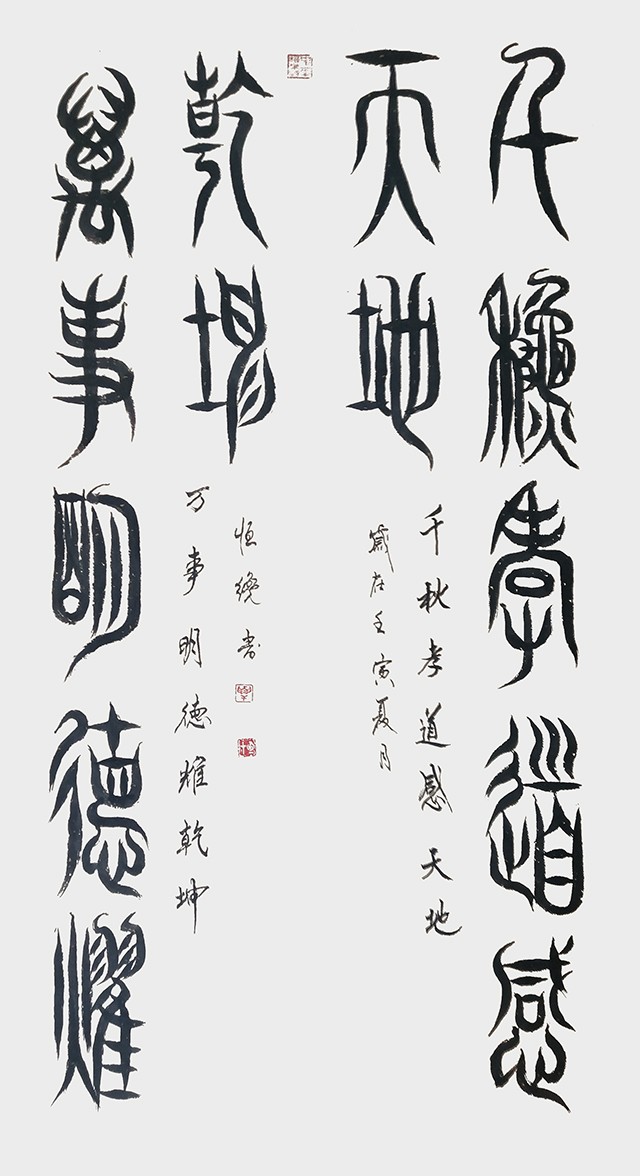 千龝孝道感
天地
萬事朙德燿
乾坤
千秋孝道感天地
歲在壬寅夏月
万事明德耀乾坤
恒書